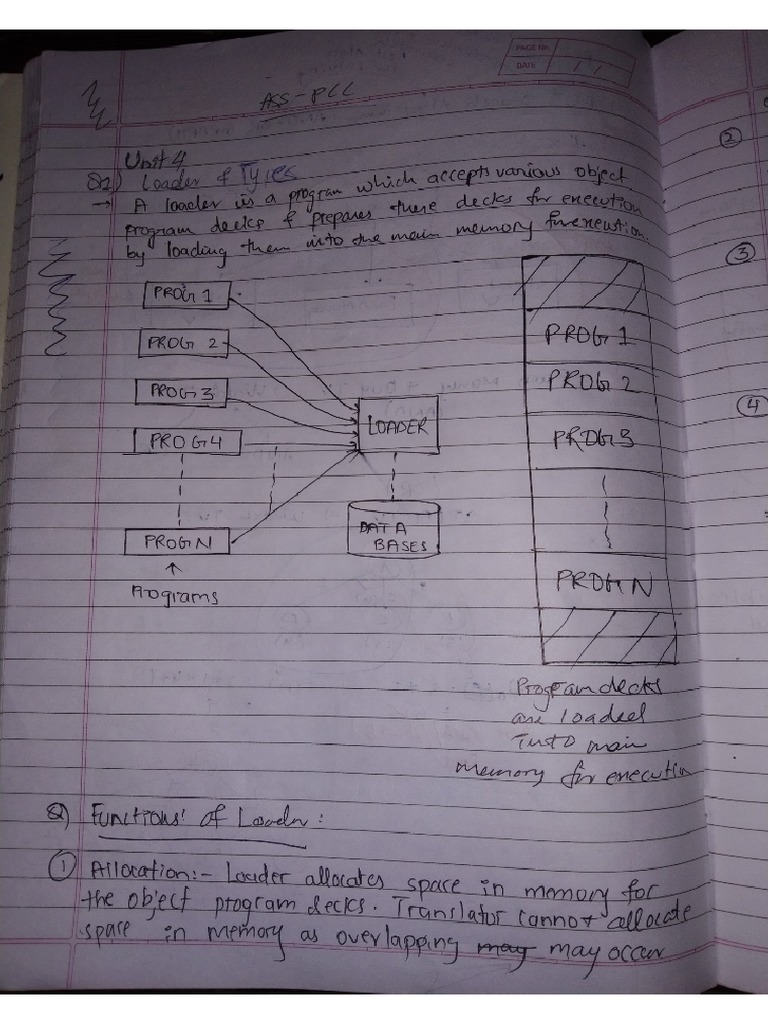 PAGE No.
DATE
ASS-PCC
Unit 4
Q2) Loader & Types
→ A loader is a program which accepts various object
program decks & prepares these decks for execution
by loading them into the main memory for execution.
PROG 1
PROG 2
PROG 3
PROG 4
PROG N
↑
Programs
LOADER
DATA
BASES
PROG 1
PROG 2
PROG 3
PROG N
Program decks
are loaded
into main
memory for execution
Q) Functions of Loader:
① Allocation:- Loader allocates space in memory for
the object program decks. Translator cannot allocate
space in memory as overlapping may may occur
②
③
④